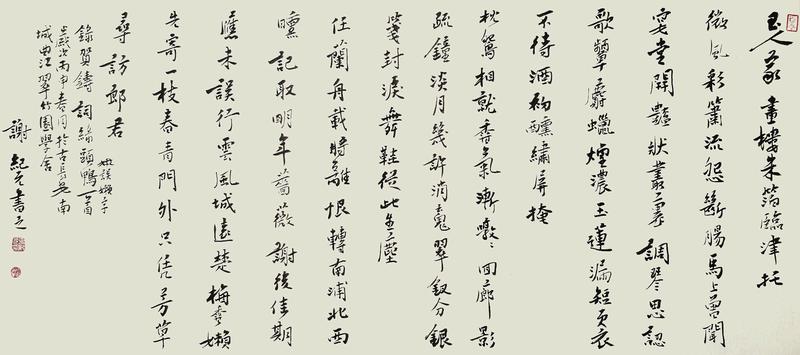 玉人家畫樓朱箔臨津托
微風彩簫流怨斷腸馬上曾聞
宴堂開豔妝叢裏調琴思認
歌顰麝蠟煙濃玉蓮漏短更衣
不待酒初醺繡屏掩
枕鴛相就香氣漸暾〻回廊影
疏鐘淡月幾許消魂翠釵分銀
箋封淚舞鞋從此生塵
任蘭舟載將離恨轉南浦北西
曛記取明年薔薇謝後佳期
應未誤行雲鳳城遠楚梅香嬾
先寄一枝春青門外只凭芳草
尋訪郎君
錄賀鑄詞綠頭鴨一首
歲次丙申春月於古長安南
城曲江翠竹園學舍
謝紀元書之